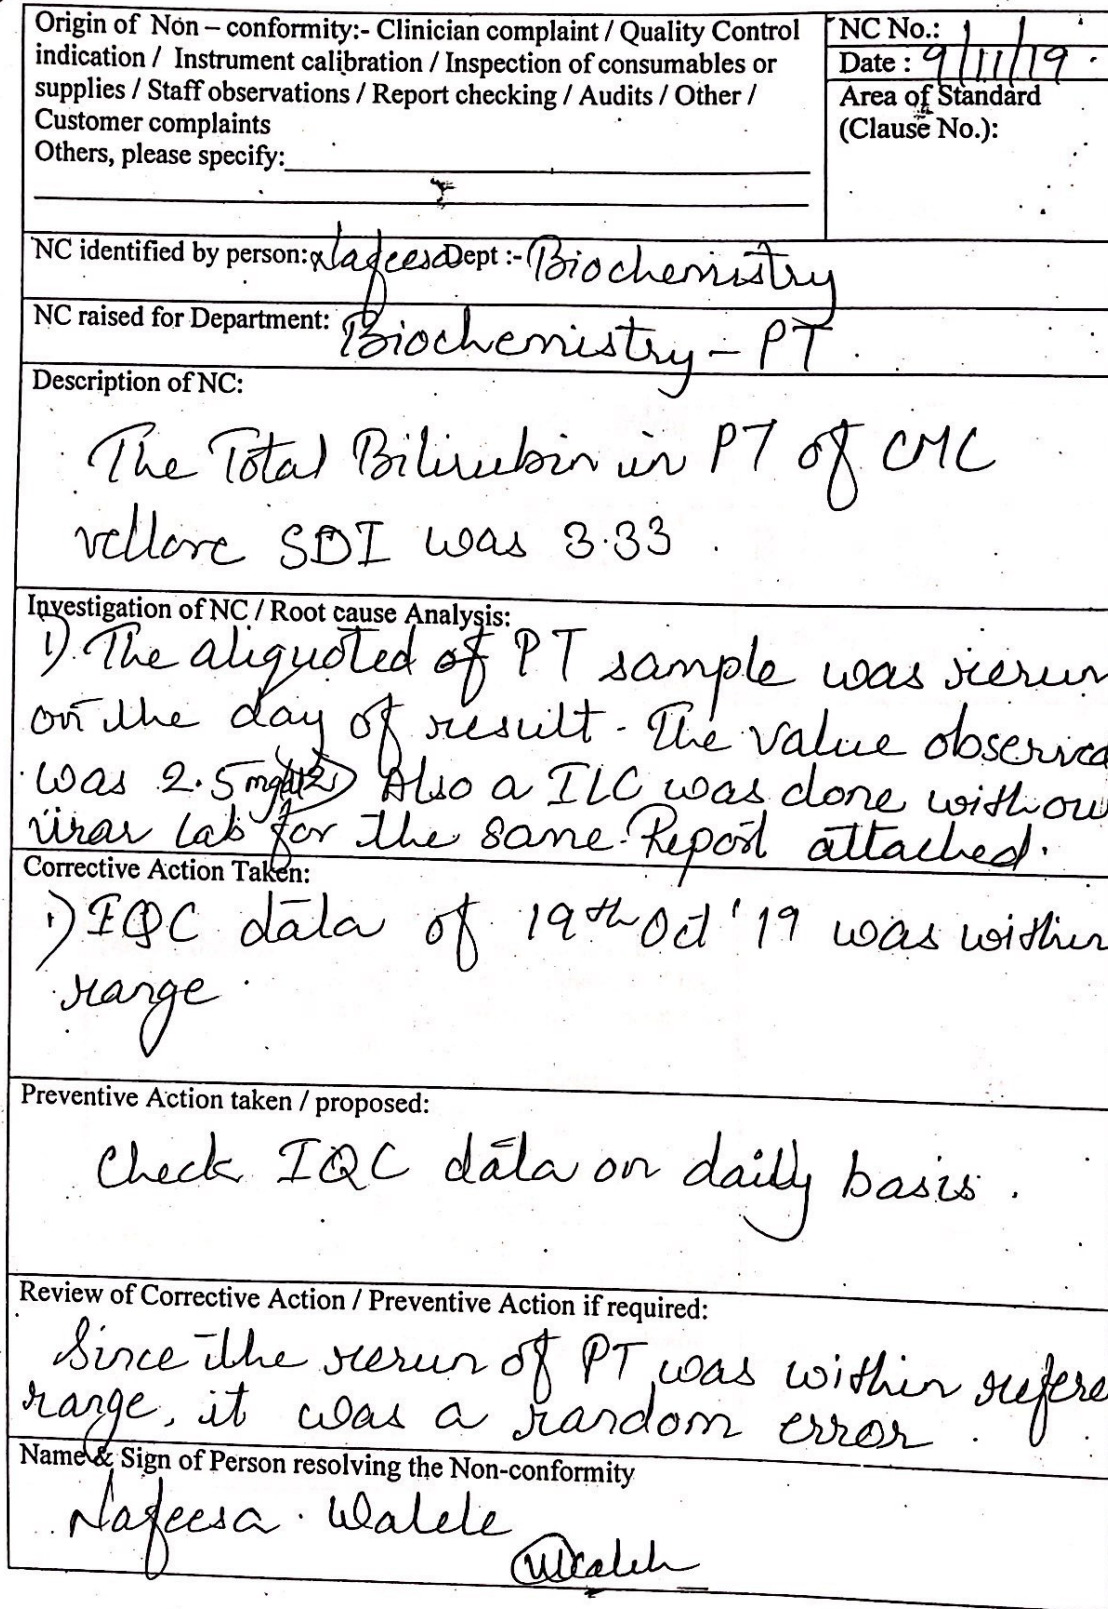 Origin of Non – conformity:- Clinician complaint / Quality Control
indication / Instrument calibration / Inspection of consumables or
supplies / Staff observations / Report checking / Audits / Other /
Customer complaints
Others, please specify:
NC No.:
Date : 9/11/19
Area of Standard
(Clause No.):
NC identified by person: Nafeesa Dept :- Biochemistry
NC raised for Department: Biochemistry - PT.
Description of NC:
The Total Bilirubin in PT of CMC
vellore SDI was 3.33.
Investigation of NC / Root cause Analysis:
1) The aliquoted of PT sample was rerun
on the day of result. The value observed
was 2.5 mg 2) Also a ILC was done with our
virar lab for the same. Report attached.
Corrective Action Taken:
1) IQC data of 19th Oct '19 was within
range.
Preventive Action taken / proposed:
Check IQC data on daily basis.
Review of Corrective Action / Preventive Action if required:
Since the rerun of PT was within refere
range, it was a random error.
Name & Sign of Person resolving the Non-conformity
Nafeesa. Walele
Walele